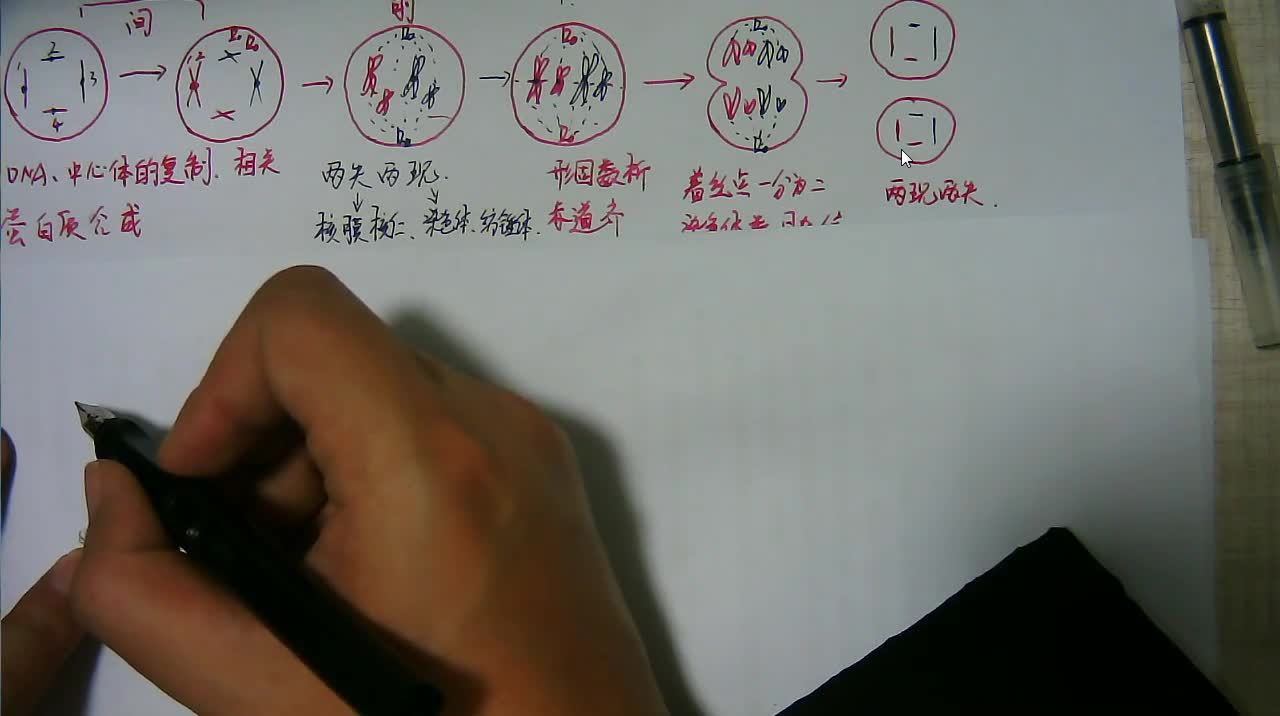 间
前
2
1
3
4
1 2
DNA、中心体的复制、相关
蛋白质合成
两失两现.
核膜核仁、染色体、纺锤体.
形固数晰
赤道齐
着丝点一分为二
两现两失.